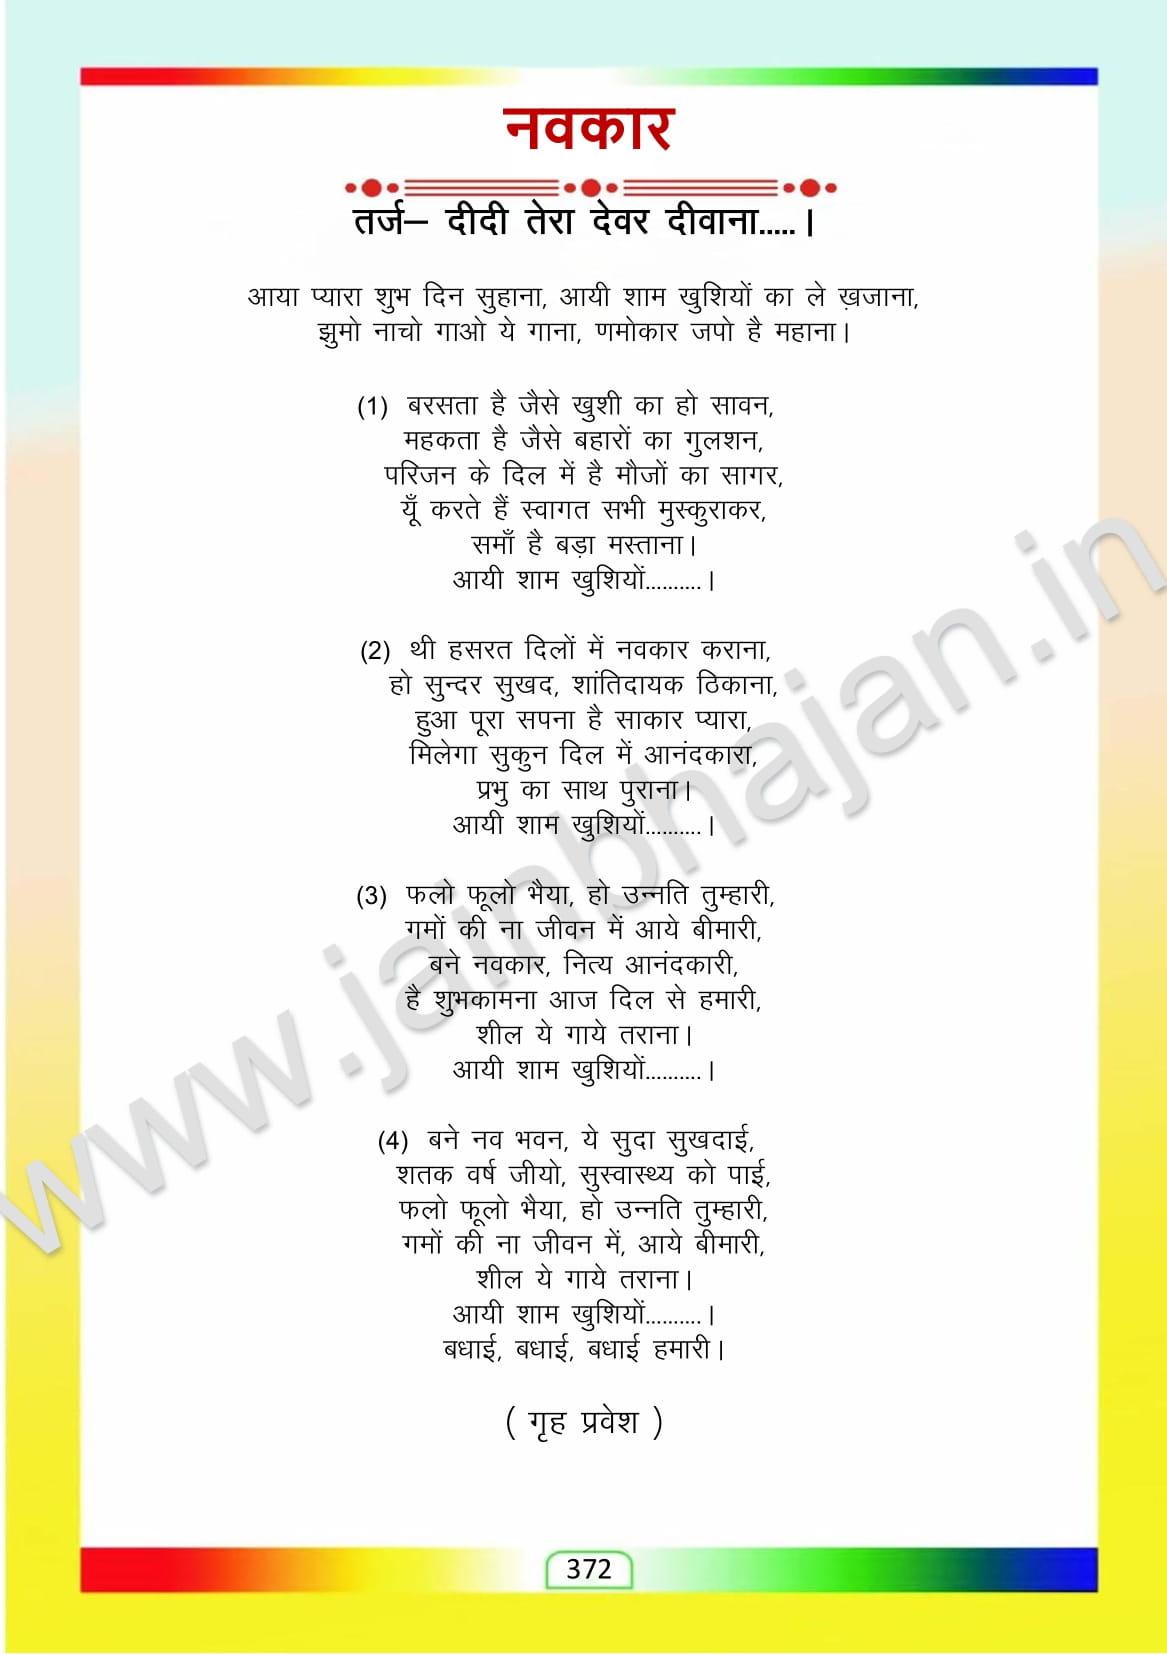 नवकार
तर्ज– दीदी तेरा देवर दीवाना.....।
आया प्यारा शुभ दिन सुहाना, आयी शाम खुशियों का ले ख़जाना,
झुमो नाचो गाओ ये गाना, णमोकार जपो है महाना।
(1) बरसता है जैसे खुशी का हो सावन,
महकता है जैसे बहारों का गुलशन,
परिजन के दिल में है मौजों का सागर,
यूँ करते हैं स्वागत सभी मुस्कुराकर,
समाँ है बड़ा मस्ताना।
आयी शाम खुशियों..........।
(2) थी हसरत दिलों में नवकार कराना,
हो सुन्दर सुखद, शांतिदायक ठिकाना,
हुआ पूरा सपना है साकार प्यारा,
मिलेगा सुकुन दिल में आनंदकारा,
प्रभु का साथ पुराना।
आयी शाम खुशियों..........।
(3) फलो फूलो भैया, हो उन्नति तुम्हारी,
गमों की ना जीवन में आये बीमारी,
बने नवकार, नित्य आनंदकारी,
है शुभकामना आज दिल से हमारी,
शील ये गाये तराना।
आयी शाम खुशियों..........।
(4) बने नव भवन, ये सुदा सुखदाई,
शतक वर्ष जीयो, सुस्वास्थ्य को पाई,
फलो फूलो भैया, हो उन्नति तुम्हारी,
गमों की ना जीवन में, आये बीमारी,
शील ये गाये तराना।
आयी शाम खुशियों..........।
बधाई, बधाई, बधाई हमारी।
( गृह प्रवेश )
372
www.jainbhajan.in